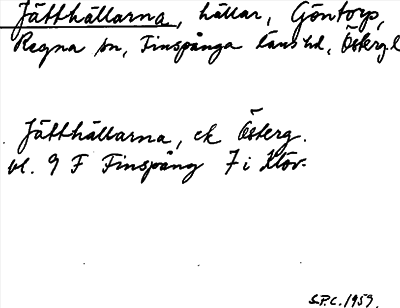 Jätthällarna, hällar, Göntorp,
Regna sn, Finspånga läns hd, Österg.l
Jätthällarna, ek Österg.
bl. 9 F Finspång 7 i
S.P.C. 1959.